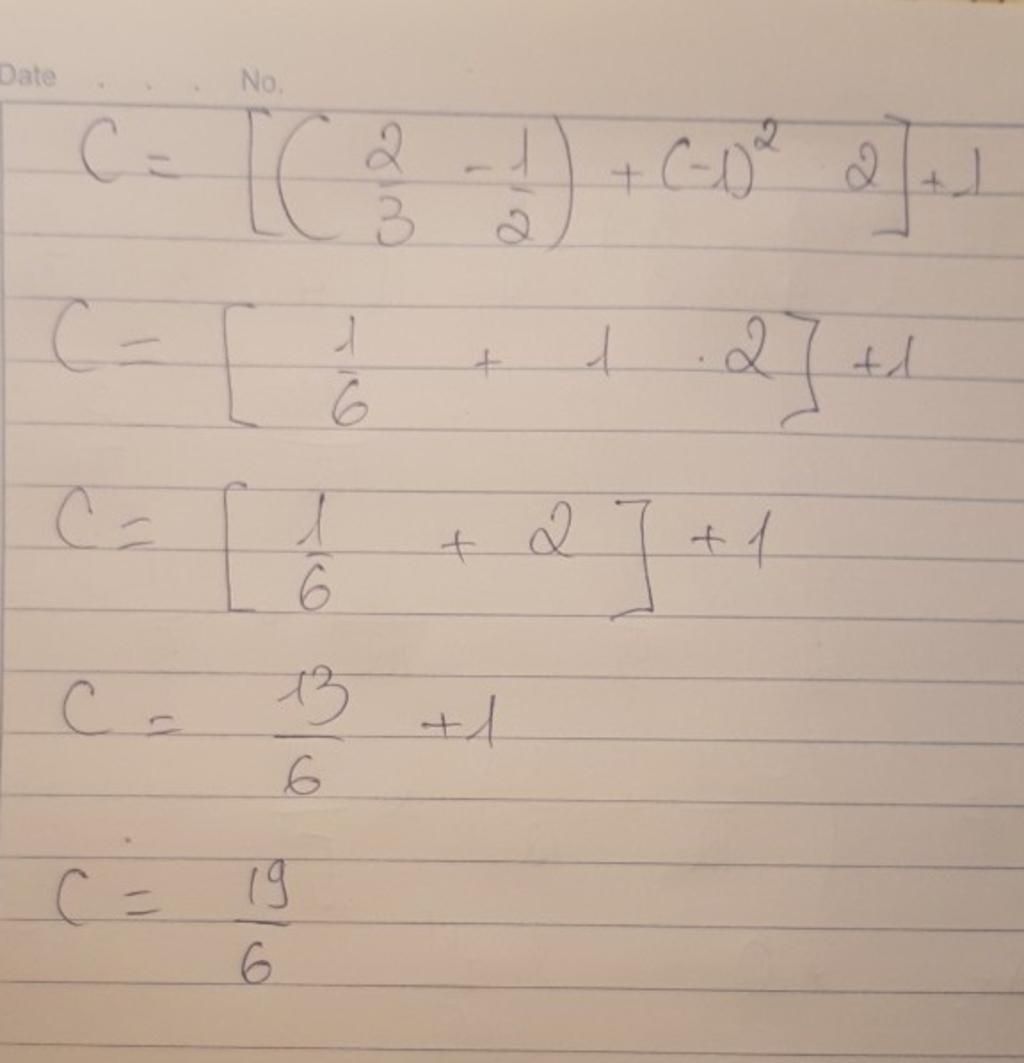 Date . . . No.
C = [(2/3 - 1/2) + (-1)² 2] + 1
C = [1/6 + 1 . 2] + 1
C = [1/6 + 2] + 1
C = 13/6 + 1
C = 19/6